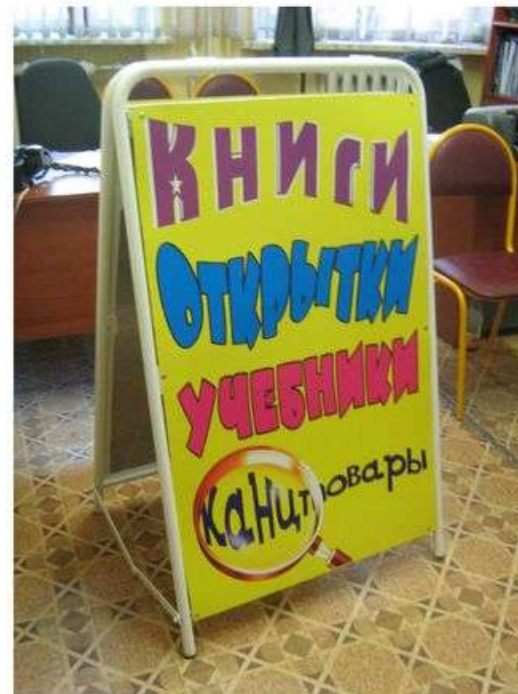 КНИГИ
ОТКРЫТКИ
УЧЕБНИКИ
канцтовары